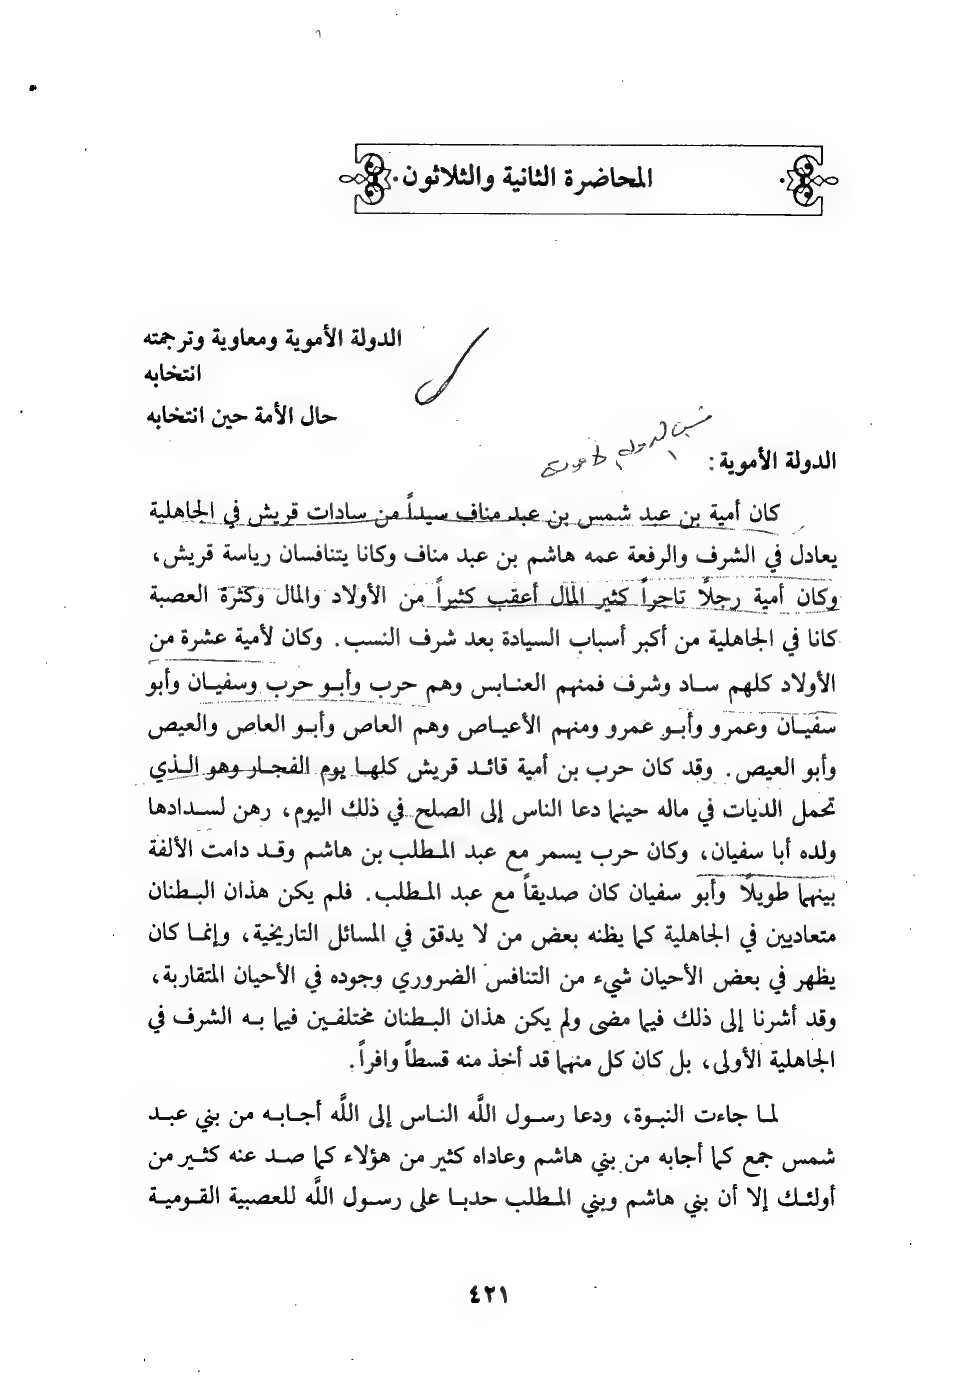 المحاضرة الثانية والثلاثون
الدولة الأموية ومعاوية وترجمته
انتخابه
حال الأمة حين انتخابه
الدولة الأموية:
كان أمية بن عبد شمس بن عبد مناف سيداً من سادات قريش في الجاهلية
يعادل في الشرف والرفعة عمه هاشم بن عبد مناف وكانا يتنافسان رياسة قريش،
وكان أمية رجلاً تاجراً كثير المال أعقب كثيراً من الأولاد والمال وكثرة العصبة
كانا في الجاهلية من أكبر أسباب السيادة بعد شرف النسب. وكان لأمية عشرة من
الأولاد كلهم ساد وشرف فمنهم العنابس وهم حرب وأبو حرب وسفيان وأبو
سفيان وعمرو وأبو عمرو ومنهم الأعياص وهم العاص وأبو العاص والعيص
وأبو العيص. وقد كان حرب بن أمية قائد قريش كلها يوم الفجار وهو الذي
تحمل الديات في ماله حينما دعا الناس إلى الصلح في ذلك اليوم، رهن لسدادها
ولده أبا سفيان، وكان حرب يسمر مع عبد المطلب بن هاشم وقد دامت الألفة
بينهما طويلاً وأبو سفيان كان صديقاً مع عبد المطلب. فلم يكن هذان البطنان
متعاديين في الجاهلية كما يظنه بعض من لا يدقق في المسائل التاريخية، وإنما كان
يظهر في بعض الأحيان شيء من التنافس الضروري وجوده في الأحيان المتقاربة،
وقد أشرنا إلى ذلك فيما مضى ولم يكن هذان البطنان مختلفين فيما به الشرف في
الجاهلية الأولى، بل كان كل منهما قد أخذ منه قسطاً وافراً.
لما جاءت النبوة، ودعا رسول اللَّه الناس إلى اللَّه أجابه من بني عبد
شمس جمع كما أجابه من بني هاشم وعاداه كثير من هؤلاء كما صد عنه كثير من
أولئك إلا أن بني هاشم وبني المطلب حدبا على رسول اللَّه للعصبية القومية
٤٢١